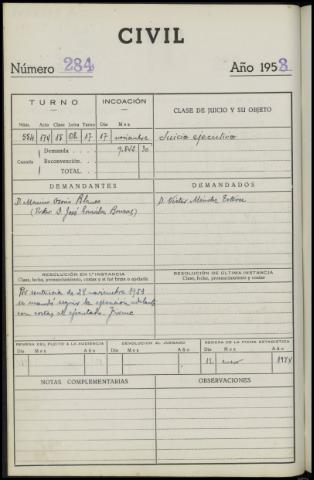 CIVIL
Número 284 Año 1958
TURNO INCOACIÓN CLASE DE JUICIO Y SU OBJETO
Núm. Acto Clase Letra Turno Día Mes
584 174 18 17 17 noviembre Juicio ejecutivo
Cuantía Demanda . . . 9.842 30
Reconvención. . . .
TOTAL. . .
DEMANDANTES DEMANDADOS
D. Osorio Blanco D. Víctor Méndez
(Procr. D. José González
RESOLUCIÓN EN 1.ª INSTANCIA RESOLUCIÓN DE ÚLTIMA INSTANCIA
Clase, fecha, pronunciamiento, costas y si fué firme o apelada Clase, fecha, pronunciamientos, costas
Por sentencia de 28 noviembre 1958
se mandó seguir la ejecución adelante
con costas al ejecutado. Firme
REMESA DEL PLEITO A LA AUDIENCIA DEVOLUCIÓN AL JUZGADO REMESA DE LA FICHA ESTADÍSTICA
Día Mes Año Día Mes Año Día Mes Año
12 enero
NOTAS COMPLEMENTARIAS OBSERVACIONES